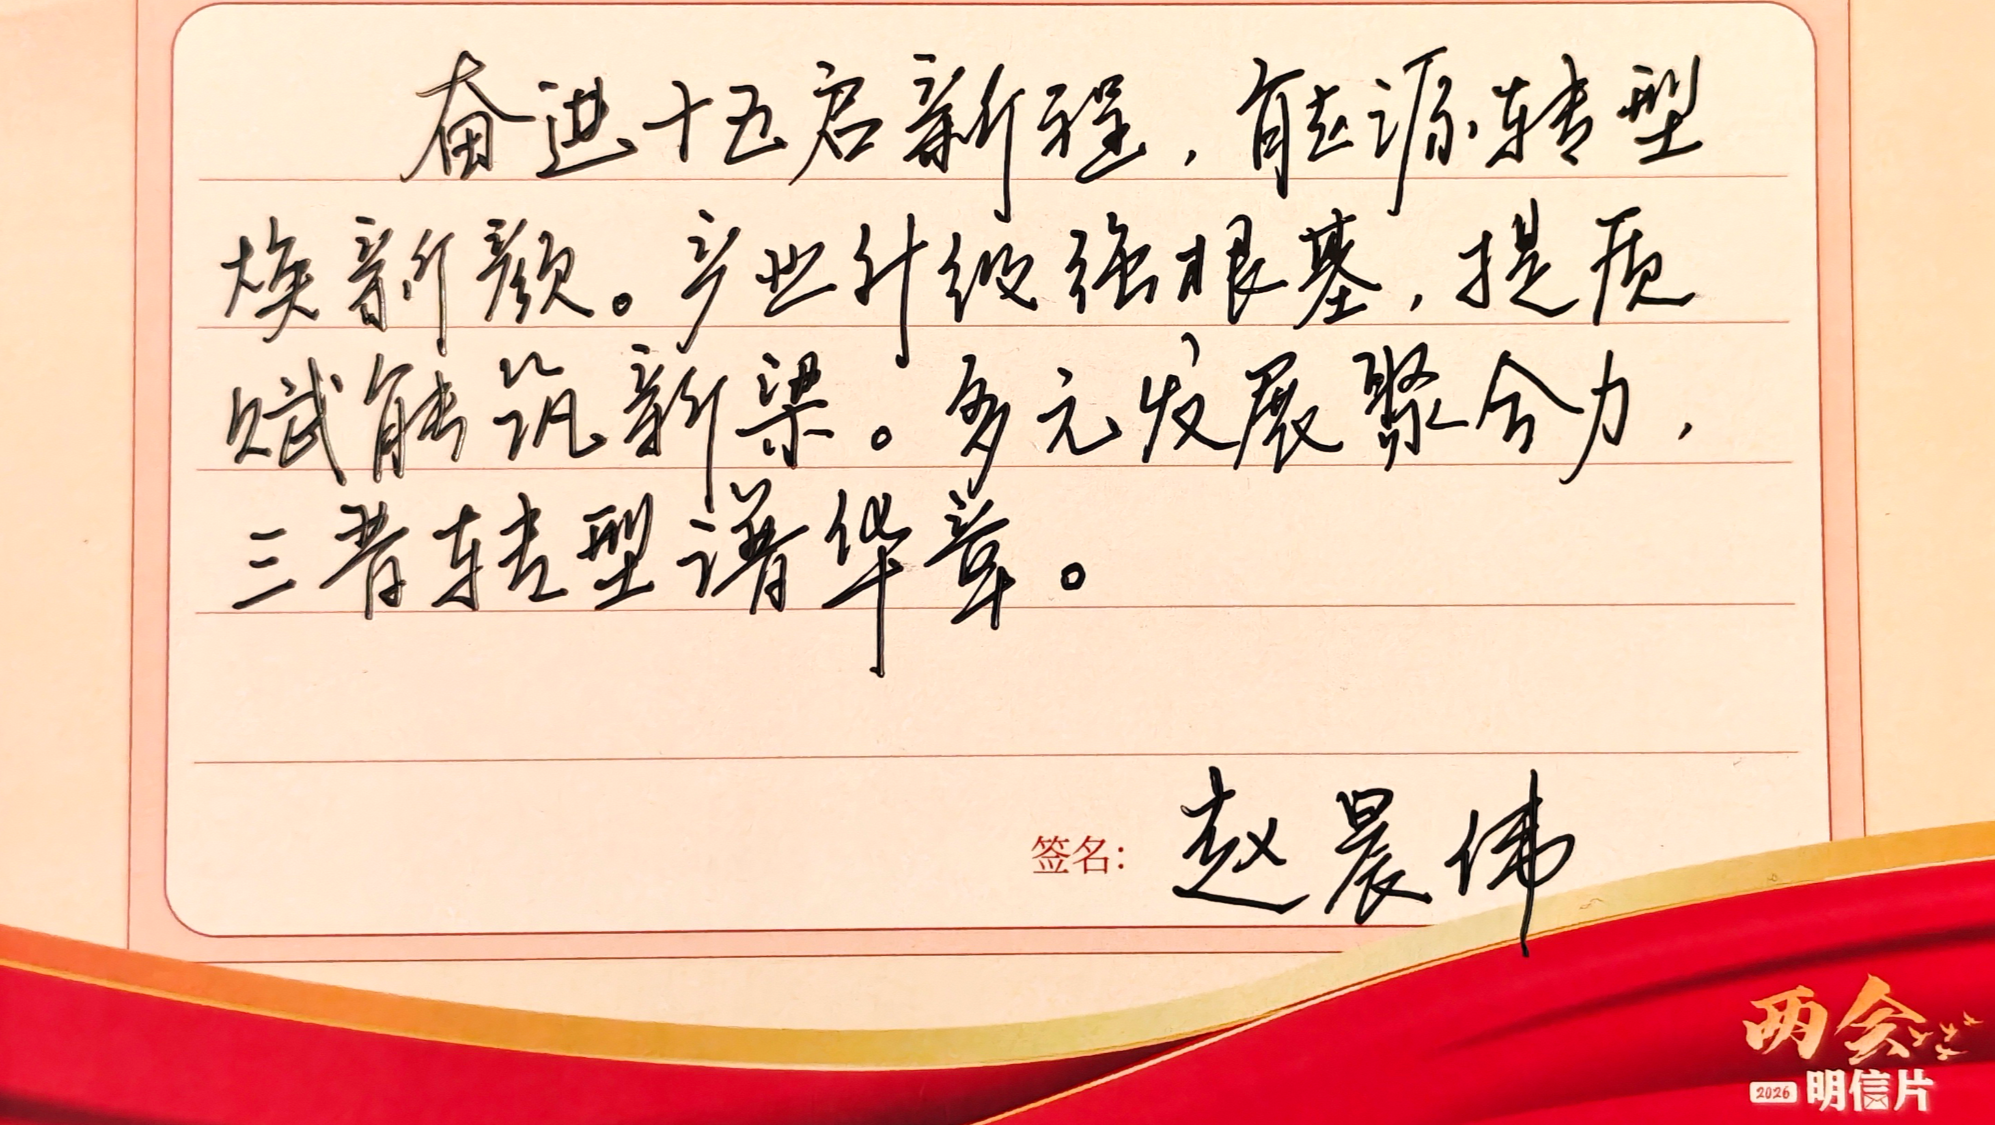 奋进十五启新程，能源转型
焕新颜。产业升级强根基，提质
赋能筑新梁。多元发展聚合力，
三晋转型谱华章。
签名：赵晨伟
两会
2026 明信片